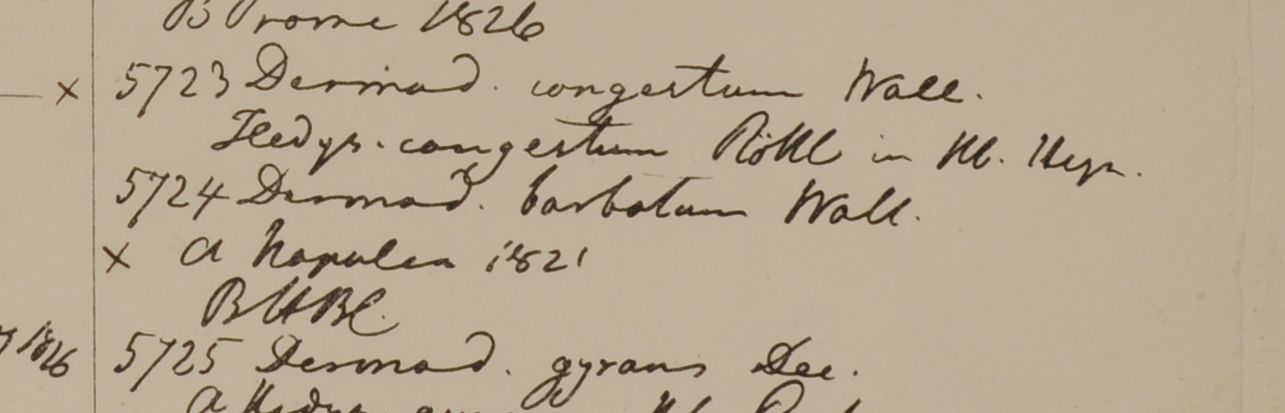 B Prome 1826
× 5723 Desmod. congestum Wall.
Hedys. congestum Röttl in Hb. Heyn.
5724 Desmod. barbatum Wall.
× A Napalea 1821
B HBC.
1826 5725 Desmod. gyrans Dec.
A Hedys.